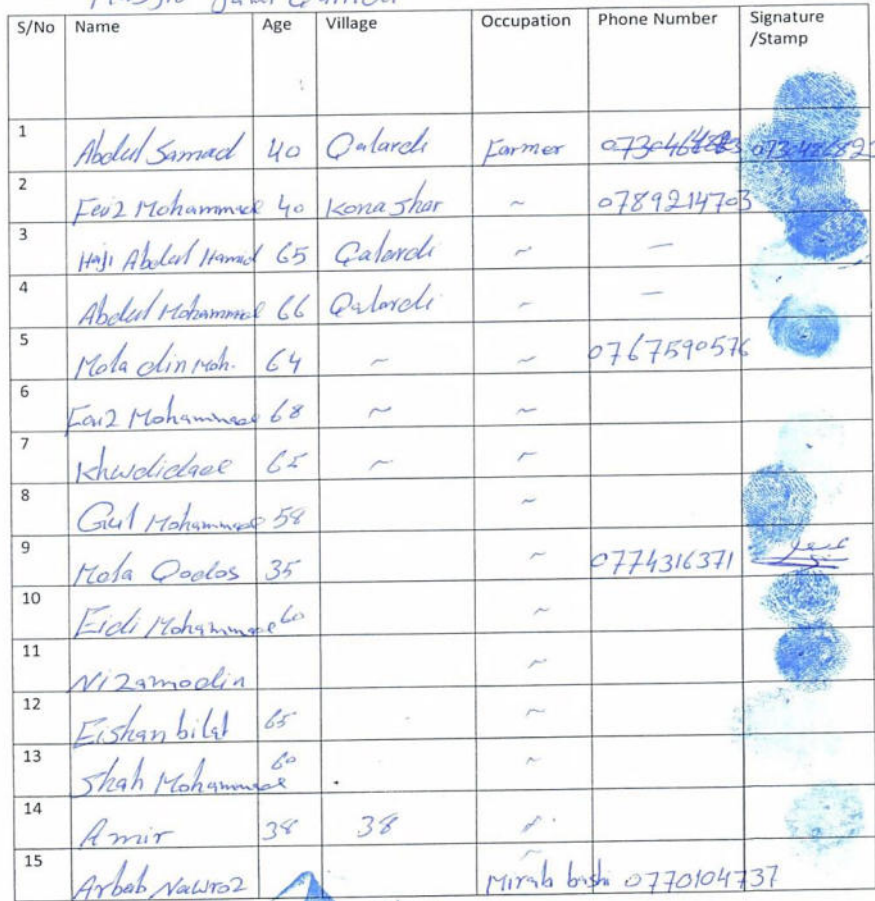 Masjid
S/No Name Age Village Occupation Phone Number Signature /Stamp
1 Abdul Samad 40 Qalardi Farmer 073
2 Faiz Mohammad 40 Kona shar ~ 0789214703
3 Haji Abdul Hamid 65 Qalardi ~ —
4 Abdul Mohammad 66 Qalardi ~ —
5 Mola din Moh. 64 ~ ~ 0767590576
6 Faiz Mohammad 68 ~ ~
7 Khudidad 65 ~ ~
8 Gul Mohammad 58 ~
9 Mola Qodos 35 ~ 0774316371
10 Eidi Mohammad 60 ~
11 Nizamodin ~
12 Eishan bilal 65 ~
13 Shah Mohammad 60 ~
14 Amir 38 38 ~
15 Arbab Nawroz ~ Mirab bashi 0770104737